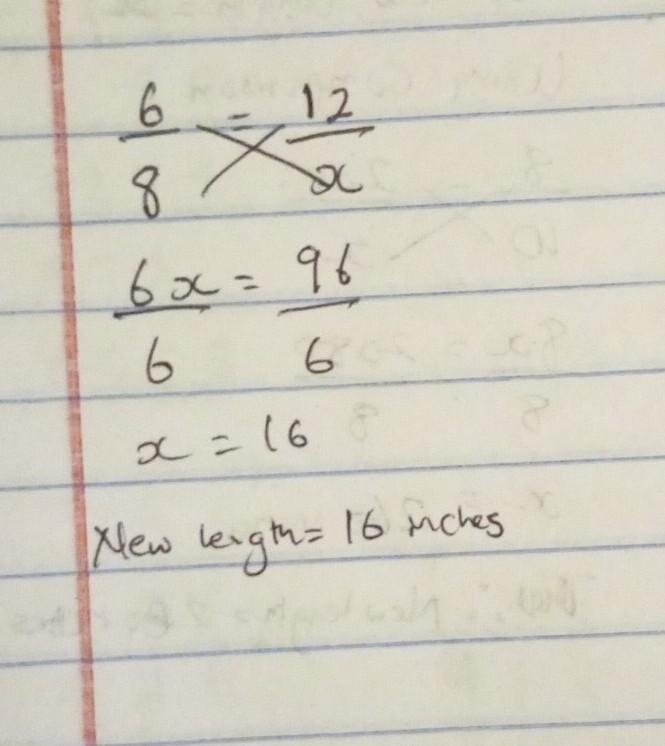 6/8 = 12/x
6x/6 = 96/6
x = 16
New length = 16 inches